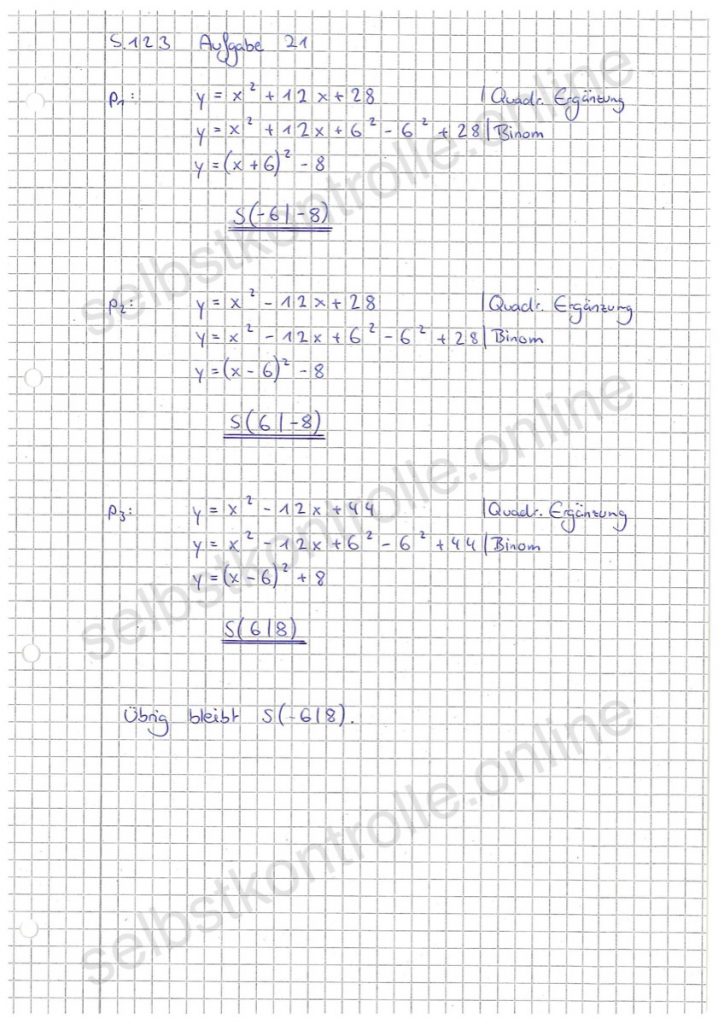 S.123 Aufgabe 21
p₁: y = x² + 12x + 28 | Quadr. Ergänzung
y = x² + 12x + 6² - 6² + 28 | Binom
y = (x + 6)² - 8
S(-6|-8)
p₂: y = x² - 12x + 28 | Quadr. Ergänzung
y = x² - 12x + 6² - 6² + 28 | Binom
y = (x - 6)² - 8
S(6|-8)
p₃: y = x² - 12x + 44 | Quadr. Ergänzung
y = x² - 12x + 6² - 6² + 44 | Binom
y = (x - 6)² + 8
S(6|8)
Übrig bleibt S(-6|8).
selbstkontrolle.online
selbstkontrolle.online
selbstkontrolle.online